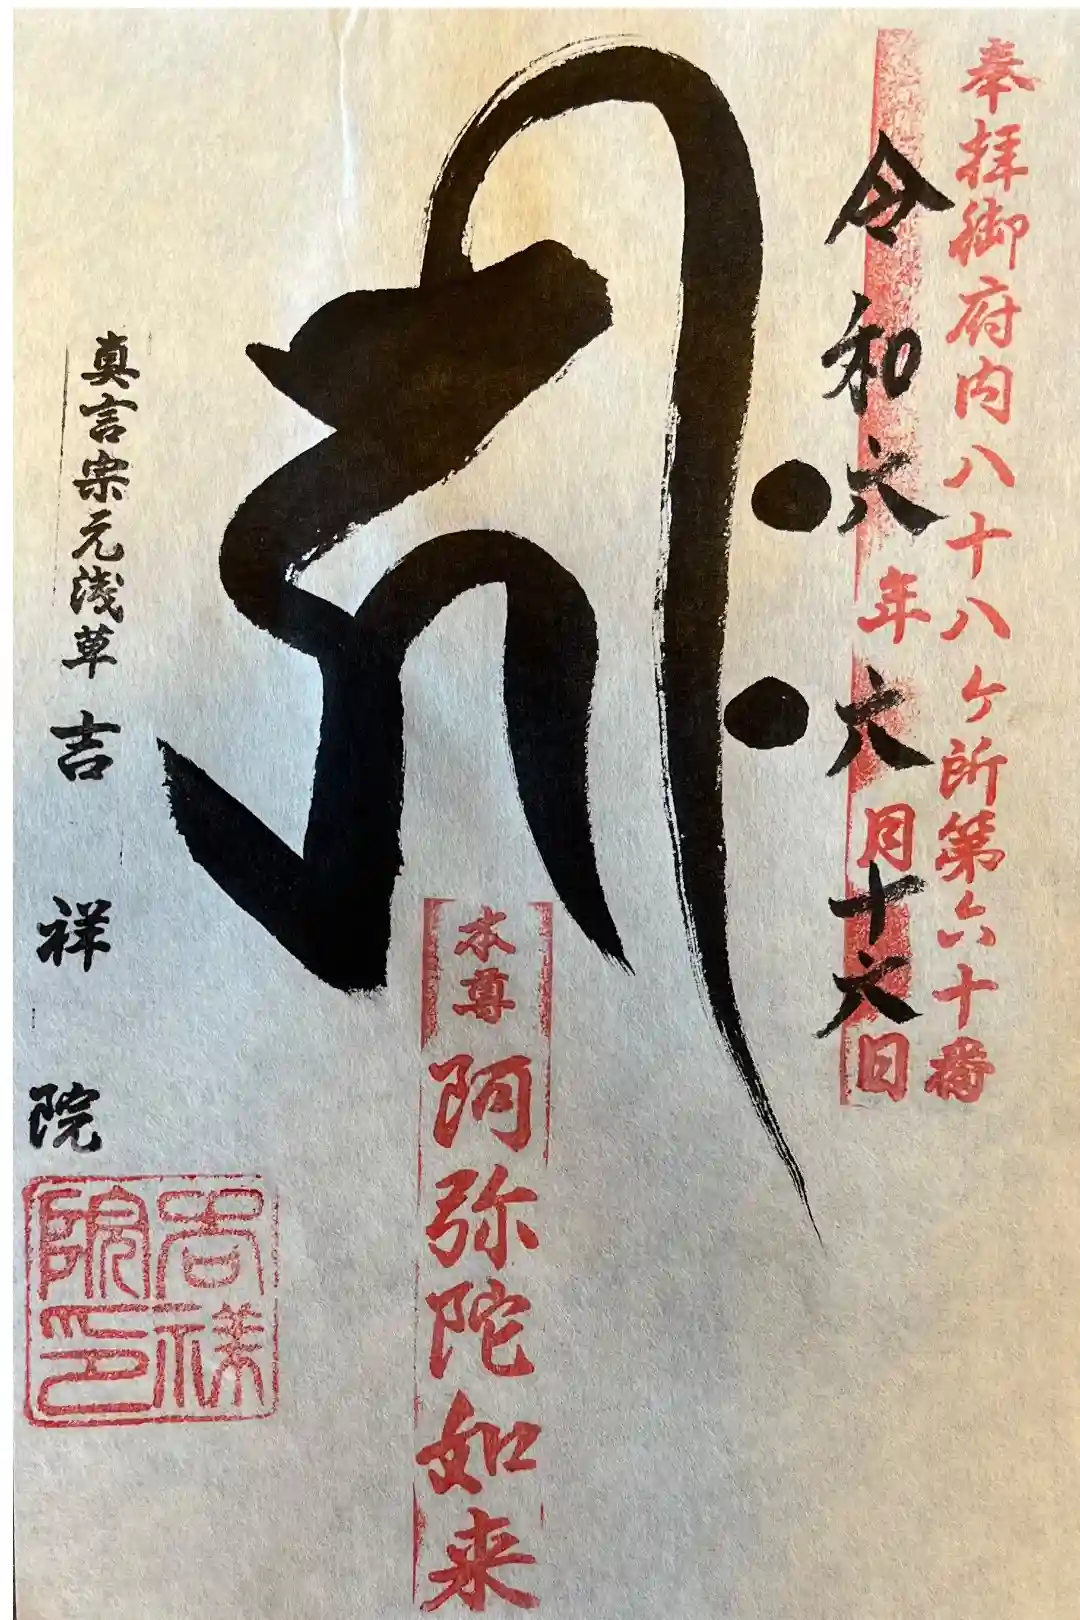 奉拝御府内八十八ヶ所第六十番
令和六年六月十六日
𑖮𑖿𑖨𑖱𑖾
本尊 阿弥陀如来
真言宗元浅草 吉祥院
吉祥院印